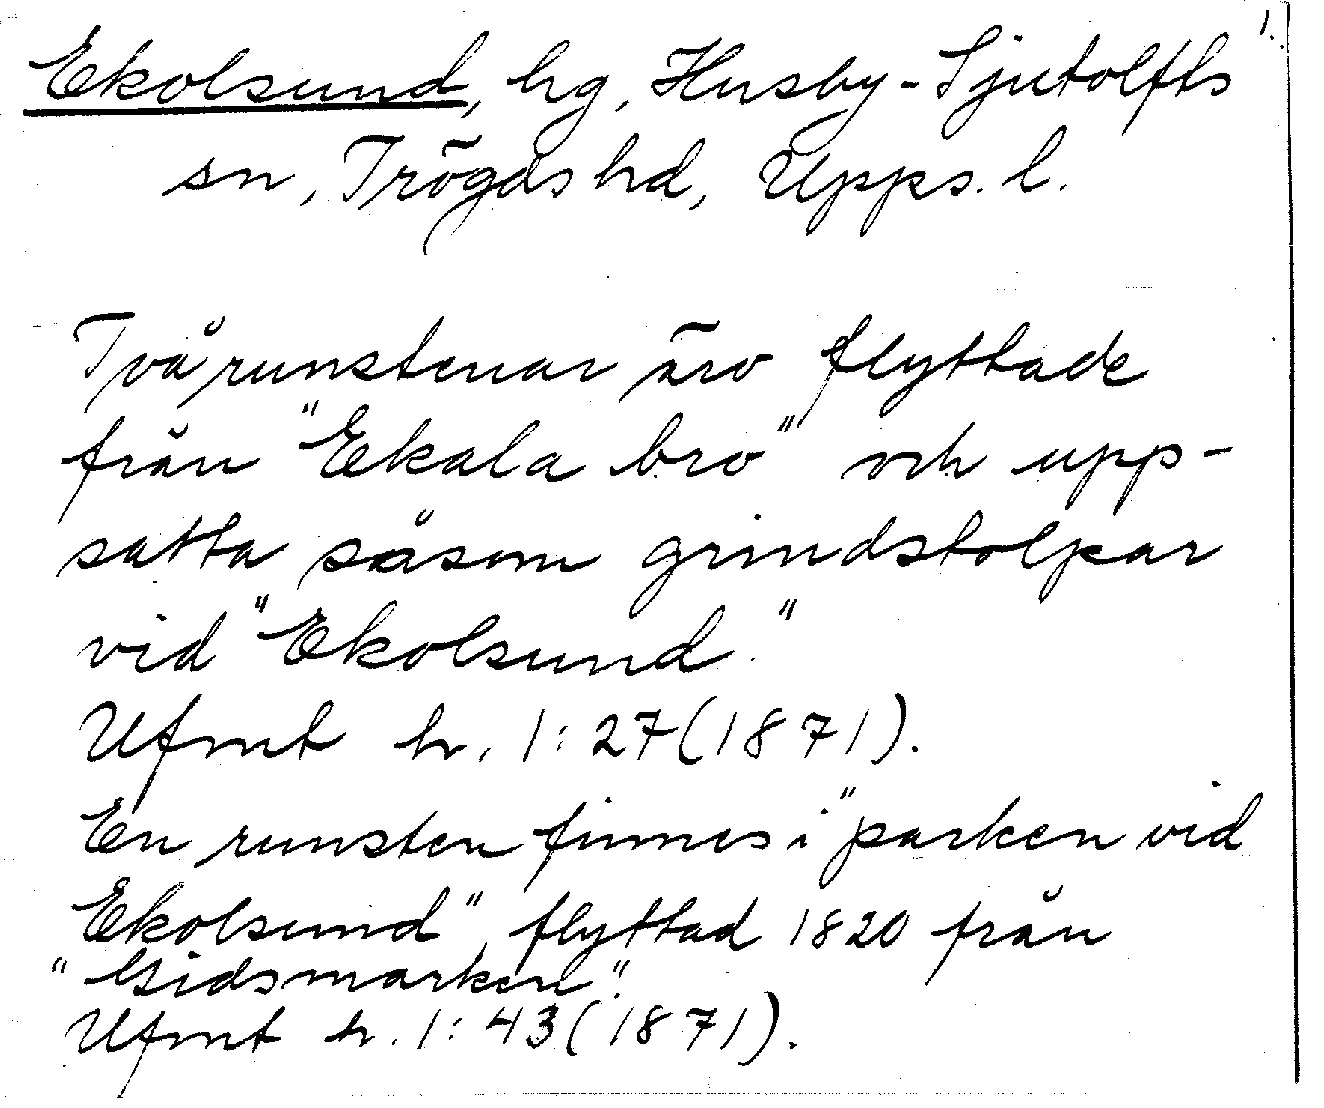 1.
Ekolsund, hg, Husby-Sjutolfts
sn, Trögds hd, Upps. l.
Två runstenar äro flyttade
från "Ekala bro" och upp-
satta såsom grindstolpar
vid "Ekolsund."
Ufmt h. 1:27(1871).
En runsten finnes i "parken vid
Ekolsund", flyttad 1820 från
"Gidsmarken".
Ufmt h. 1:43(1871).